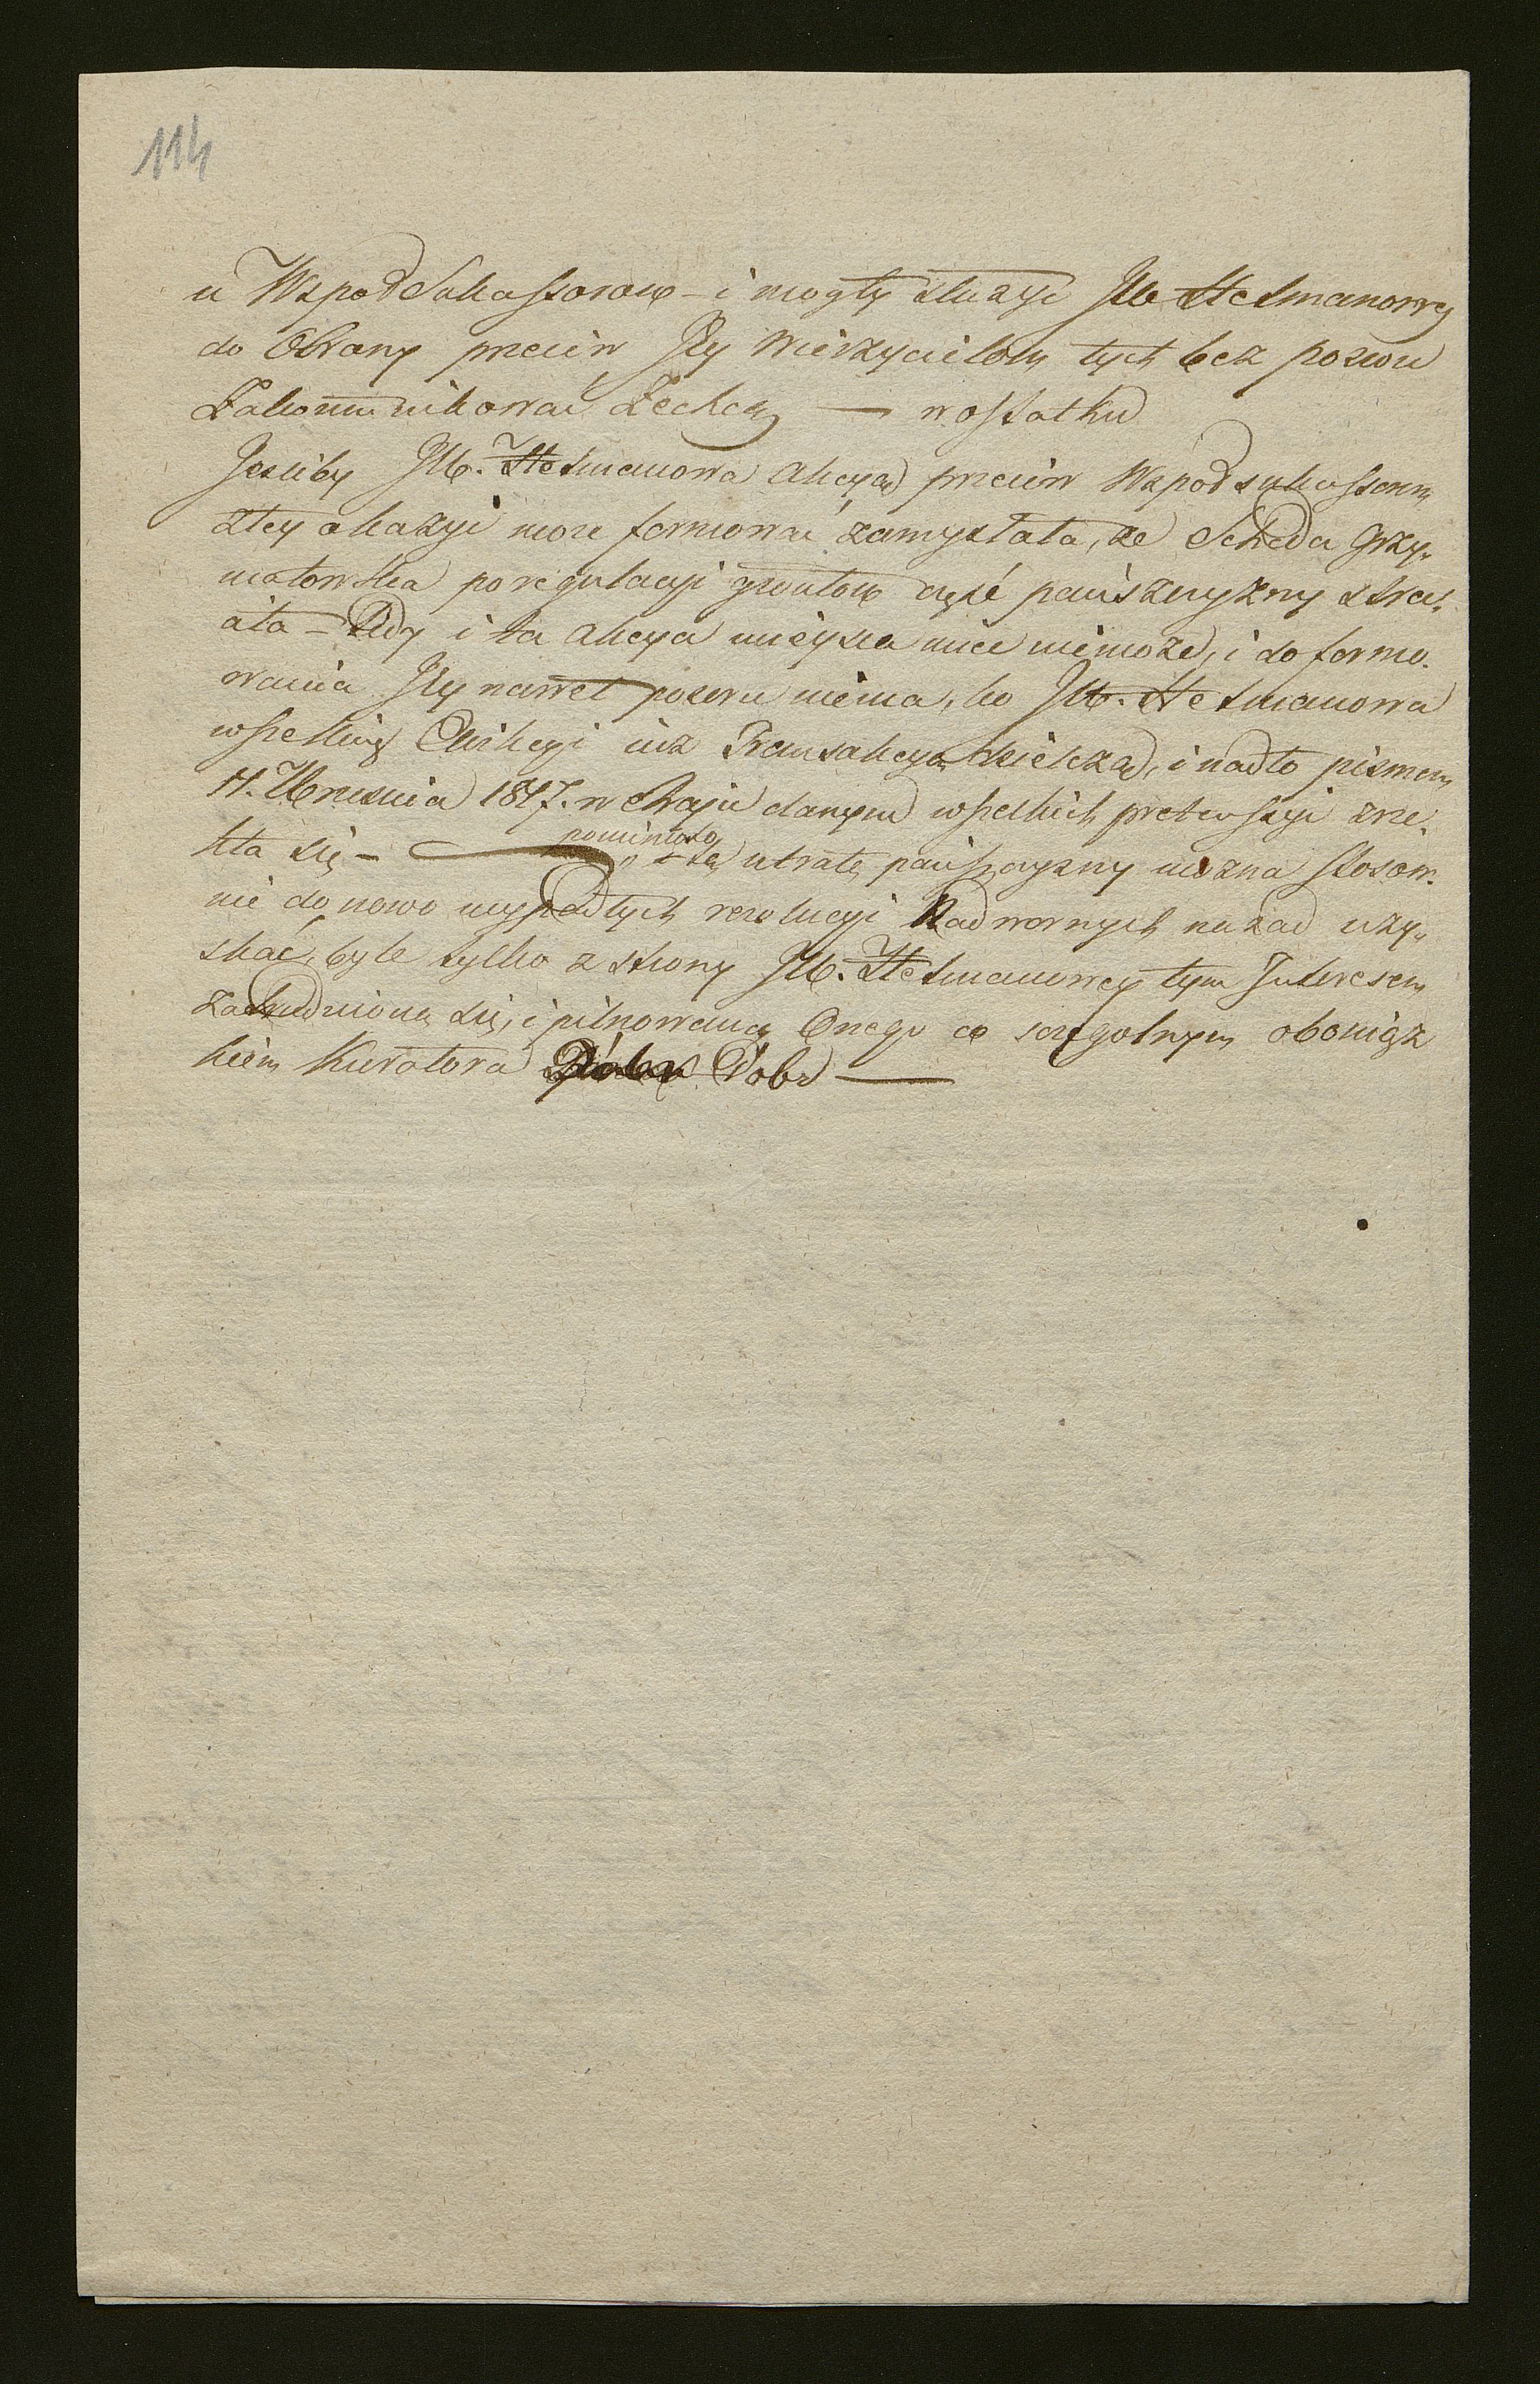 114
u Wspołsukassorow – i mogły służyć JW Hetmanowey
do Obrony przeciw Jey Wierzycielom tych bez pozwu
Zakommunikować Zechcą — w ostatku
Jesliby JW. Hetmanowa Akcyą przeciw Wspołsukassorom
ztey okazyi more formować zamyslała, ze Scheda Grzy„
małowska po regulacyi gruntow część panszczyzny stra„
ciła – Tedy i ta Akcya mieysca miec niemoże, i do formo„
wania Jey nawet pozoru niema, bo JW. Hetmanowa
wszelkiey Ewikcyi iuz Transakcyą dzielczą, i nadto pismem
11. Wrzesnia 1817. w Kraju danym wszelkich pretensyi zrze„
kła się – pominąwszy że utratę panszczyzny można stosow„
nie do nowo wypadłych rezolucyi Nadwornych nazad uzy„
skać, byle tylko z strony JW. Hetmanowey tym Interesem
zatrudniono się, i pilnowano Onego co szczegolnym obowiąz
kiem Kuratora Dobr —